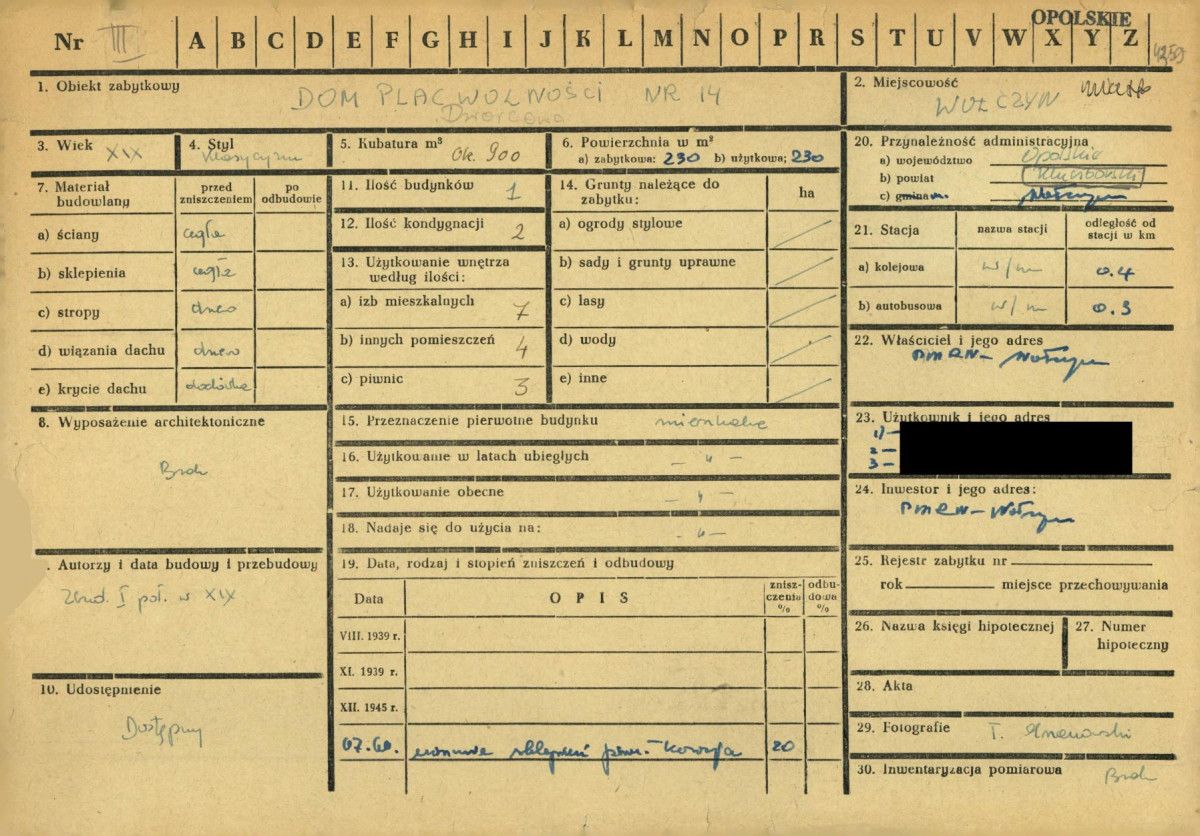 OPOLSKIE
Nr III A B C D E F G H I J K L M N O P R S T U V W X Y Z
4259
1. Obiekt zabytkowy
DOM PLAC WOLNOŚCI NR 14
Dworcowa
2. Miejscowość
WOŁCZYN miasto
3. Wiek XIX
4. Styl klasycyzm
5. Kubatura m³ ok. 900
6. Powierzchnia w m²
a) zabytkowa: 230 b) użytkowa; 230
7. Materiał budowlany
przed zniszczeniem
po odbudowie
a) ściany cegła
b) sklepienia cegła
c) stropy drewo
d) wiązania dachu drewo
e) krycie dachu dachówka
8. Wyposażenie architektoniczne
Brak
. Autorzy i data budowy i przebudowy
Zbud. I poł. w XIX
10. Udostępnienie
Dostępny
11. Ilość budynków 1
12. Ilość kondygnacji 2
13. Użytkowanie wnętrza
według ilości:
a) izb mieszkalnych 7
b) innych pomieszczeń 4
c) piwnic 3
14. Grunty należące do
zabytku:
ha
a) ogrody stylowe
b) sady i grunty uprawne
c) lasy
d) wody
e) inne
15. Przeznaczenie pierwotne budynku mieszkalne
16. Użytkowanie w latach ubiegłych – " –
17. Użytkowanie obecne – " –
18. Nadaje się do użycia na: – " –
19. Data, rodzaj i stopień zniszczeń i odbudowy
Data
OPIS
znisz-
czenia
%
odbu-
dowa
%
VIII. 1939 r.
XI. 1939 r.
XII. 1945 r.
07.60. 20
20. Przynależność administracyjna
a) województwo Opolskie
b) powiat Kluczborski
c) gmina m. Wołczyn
21. Stacja
nazwa stacji
odległość od
stacji w km
a) kolejowa w/m 0.4
b) autobusowa w/m 0.3
22. Właściciel i jego adres
PMRN - Wołczyn
23. Użytkownik i jego adres
1) –
2 –
3 –
24. Inwestor i jego adres:
PMRN - Wołczyn
25. Rejestr zabytku nr
rok miejsce przechowywania
26. Nazwa księgi hipotecznej
27. Numer
hipoteczny
28. Akta
29. Fotografie T.
30. Inwentaryzacja pomiarowa Brak